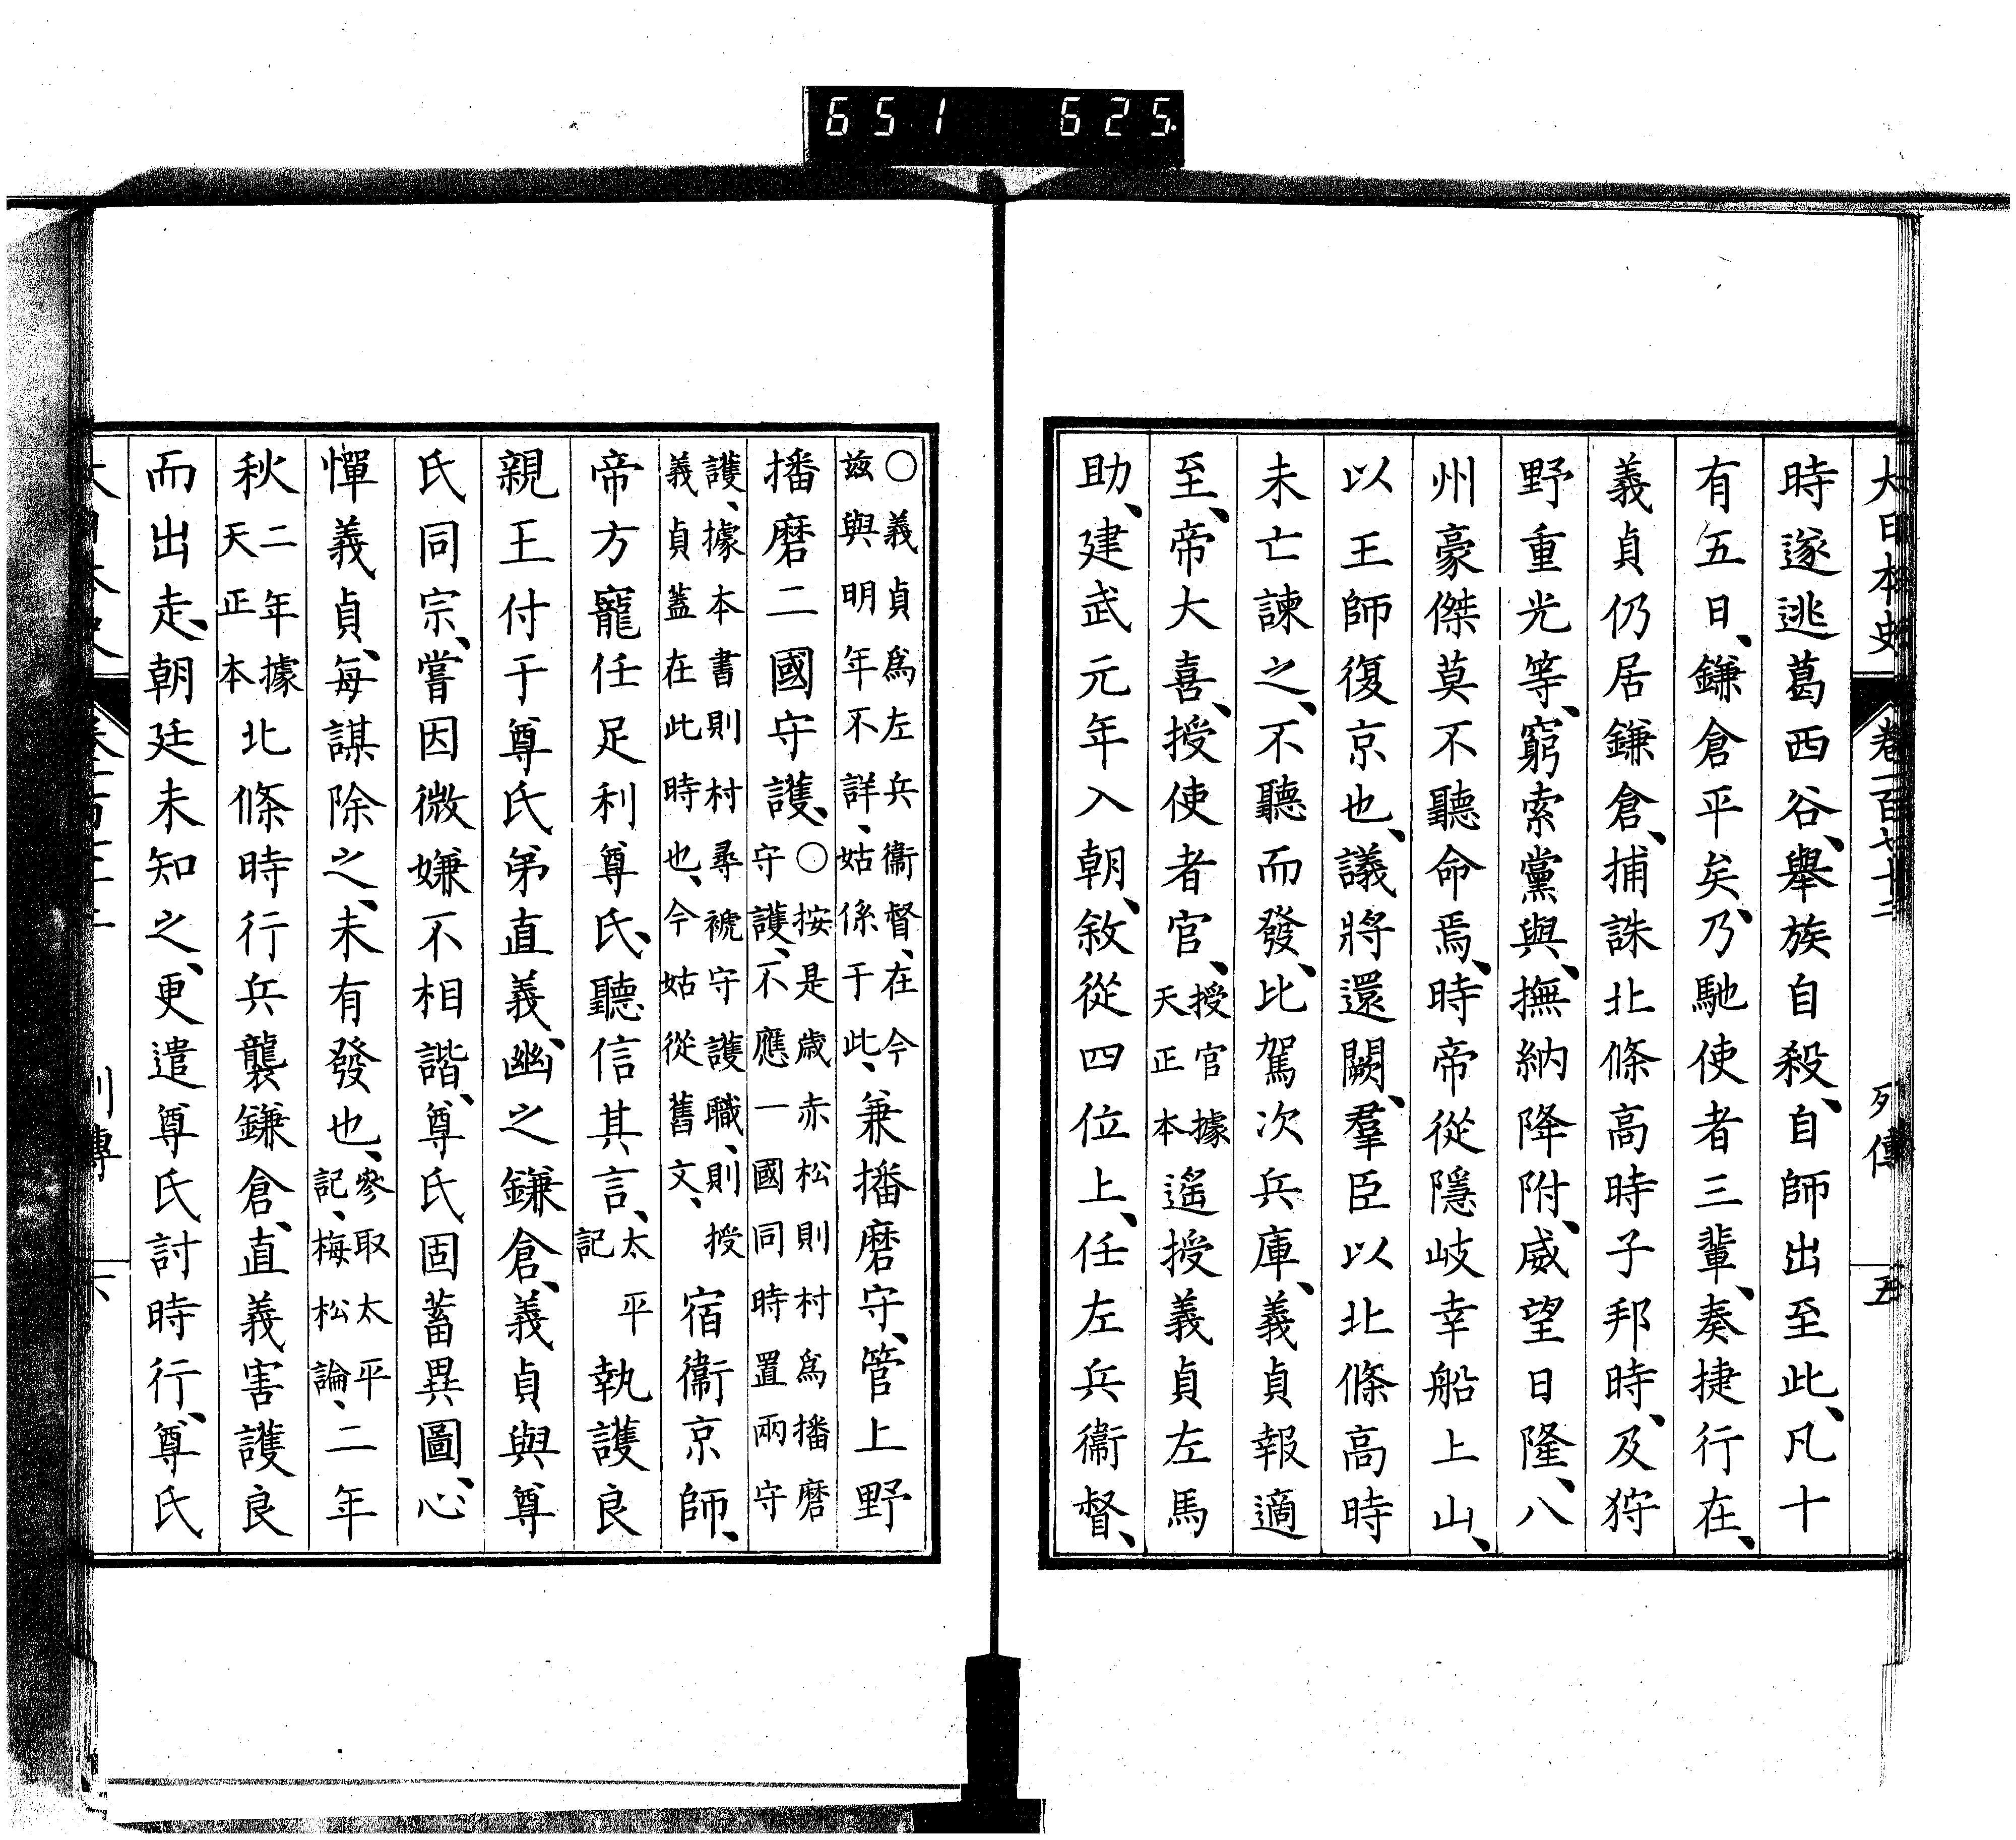 651 625
大日本史 卷一百七十二 列傳 五
時遂逃葛西谷、舉族自殺、自師出至此、凡十
有五日、鎌倉平矣、乃馳使者三輩、奏捷行在、
義貞仍居鎌倉、捕誅北條高時子邦時、及狩
野重光等、窮索黨與、撫納降附、威望日隆、八
州豪傑莫不聽命焉、時帝從隱岐幸船上山、
以王師復京也、議將還闕、羣臣以北條高時
未亡諫之、不聽而發、比駕次兵庫、義貞報適
至、帝大喜、授使者官、授官據天正本遙授義貞左馬
助、建武元年入朝、敘從四位上、任左兵衞督、
○義貞爲左兵衞督、在今
茲與明年不詳、姑係于此、兼播磨守、管上野
播磨二國守護、○按是歲赤松則村爲播磨
守護、不應一國同時置兩守
護、據本書則村尋褫守護職、則授
義貞蓋在此時也、今姑從舊文、宿衞京師、
帝方寵任足利尊氏、聽信其言、太平記執護良
親王付于尊氏弟直義、幽之鎌倉、義貞與尊
氏同宗、嘗因微嫌不相諧、尊氏固蓄異圖、心
憚義貞、每謀除之、未有發也、參取太平記、梅松論、二年
秋二年據天正本北條時行兵襲鎌倉、直義害護良
而出走、朝廷未知之、更遣尊氏討時行、尊氏